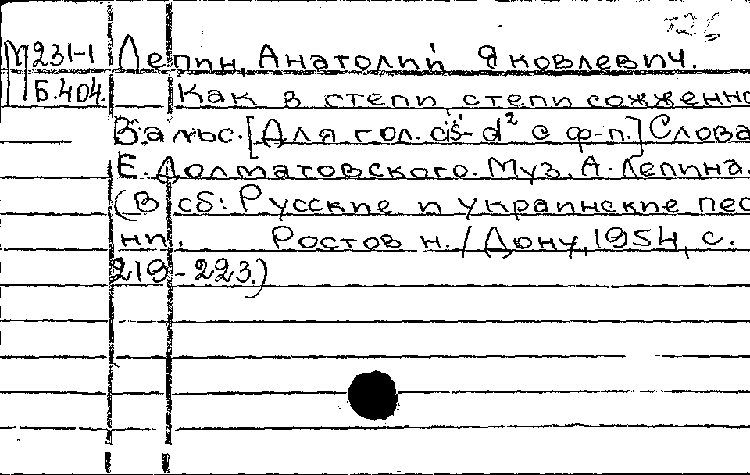 М231-1 Лепин, Анатолий Яковлевич.
Б.404. Как в степи, степи сожженно
Вальс. [Для гол. cis¹-d² с ф-п.] Слова
Е. Долматовского. Муз. А. Лепина.
(В сб: Русские и украинские пес
ни. Ростов н./Дону, 1954, с.
219-223.)